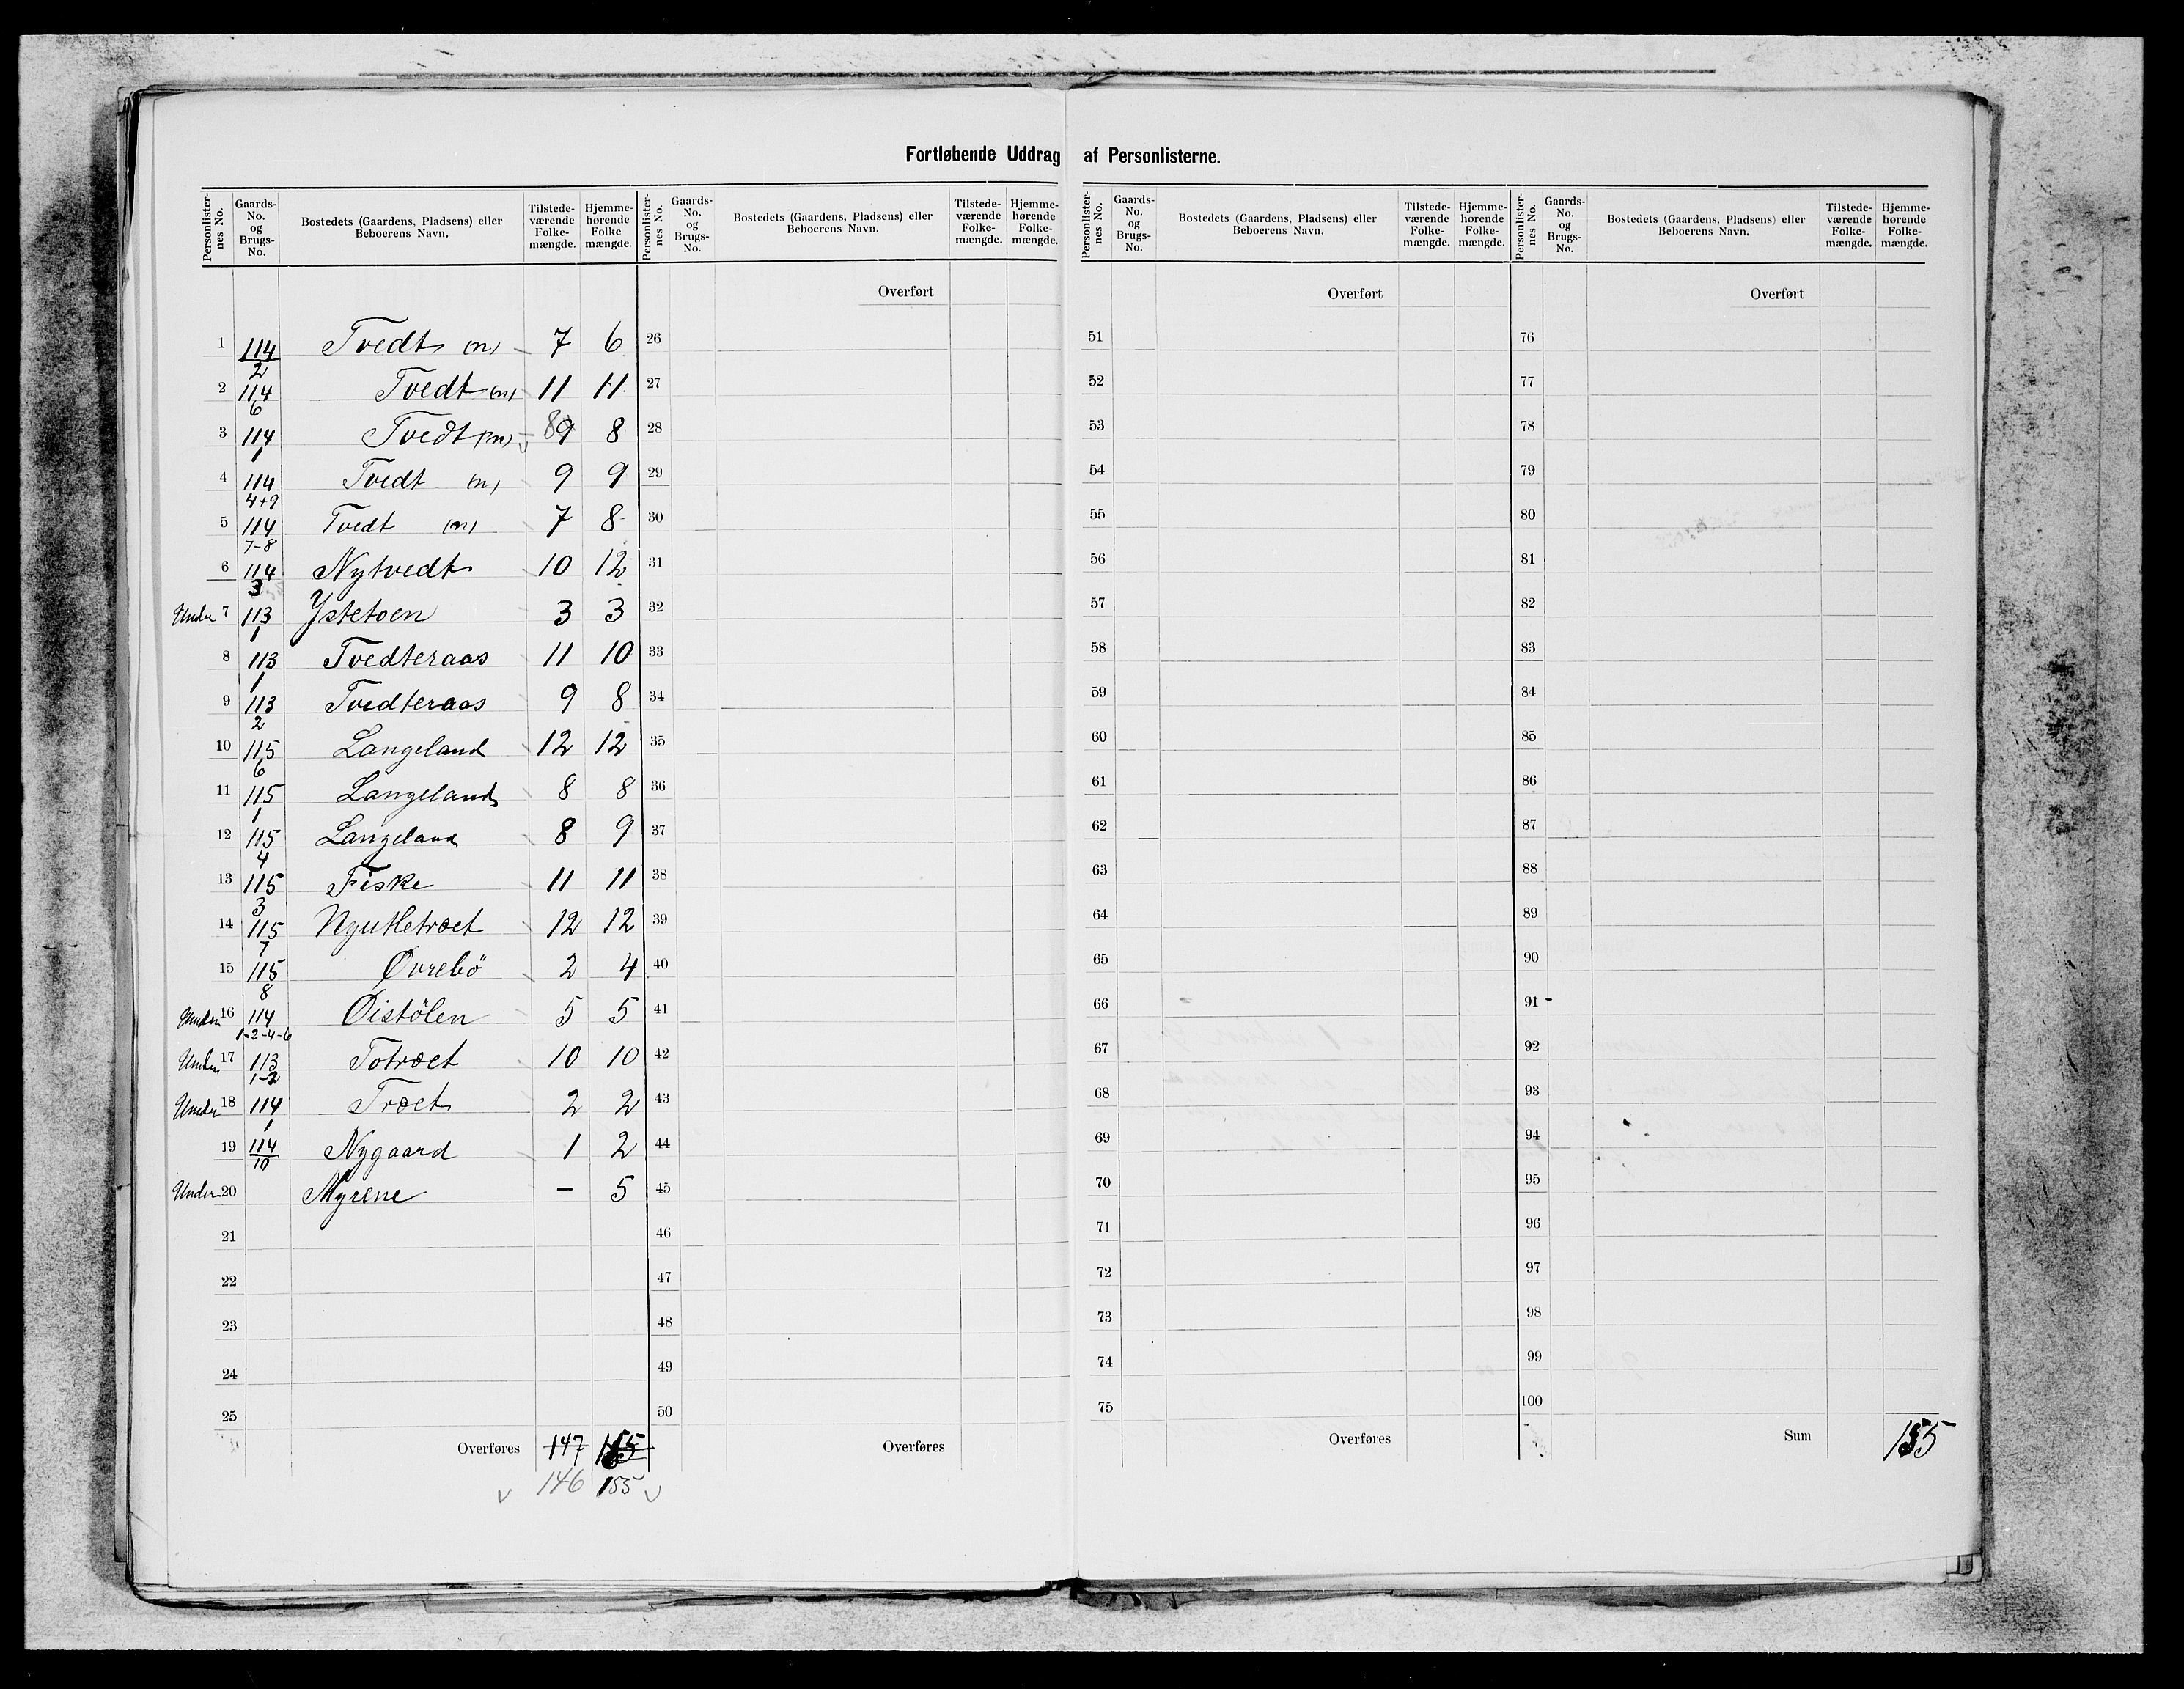 Fortløbende Uddrag af Personlisterne.
Personlister-nes No. Gaards-No. og Brugs-No. Bostedets (Gaardens, Pladsens) eller Beboerens Navn. Tilstede-værende Folke-mængde. Hjemme-hørende Folke mængde.
Personlister-nes No. Gaards-No. og Brugs-No. Bostedets (Gaardens, Pladsens) eller Beboerens Navn. Tilstede-værende Folke-mængde. Hjemme-hørende Folke-mængde.
Personlister-nes No. Gaards-No. og Brugs-No. Bostedets (Gaardens, Pladsens) eller Beboerens Navn. Tilstede-værende Folke-mængde. Hjemme-hørende Folke-mængde.
Personlister-nes No. Gaards-No. og Brugs-No. Bostedets (Gaardens, Pladsens) eller Beboerens Navn. Tilstede-værende Folke-mængde. Hjemme-hørende Folke-mængde.
Overført Overført Overført
1 114/2 Tvedt (n) 7 6 26 51 76
2 114/6 Tvedt (n) 11 11 27 52 77
3 114/1 Tvedt (n) 8 9 8 28 53 78
4 114/4+9 Tvedt (n) 9 9 29 54 79
5 114/7-8 Tvedt (n) 7 8 30 55 80
6 114/3 Nytvedt 10 12 31 56 81
Under 7 113/1 Ystetoen 3 3 32 57 82
8 113/1 Tvedteraas 11 10 33 58 83
9 113/2 Tvedteraas 9 8 34 59 84
10 115/6 Langeland 12 12 35 60 85
11 115/1 Langeland 8 8 36 61 86
12 115/4 Langeland 8 9 37 62 87
13 115/3 Fiske 11 11 38 63 88
14 115/7 12 12 39 64 89
15 115/8 Øvrebö 2 4 40 65 90
Under 16 114/1-2-4-6 Oistölen 5 5 41 66 91
Under 17 113/1-2 Totræet 10 10 42 67 92
Under 18 114/1 Træet 2 2 43 68 93
19 114/10 Nygaard 1 2 44 69 94
Under 20 Myrene - 5 45 70 95
21 46 71 96
22 47 72 97
23 48 73 98
24 49 74 99
25 50 75 100
Overføres 147 Overføres Overføres Sum 155
146 155